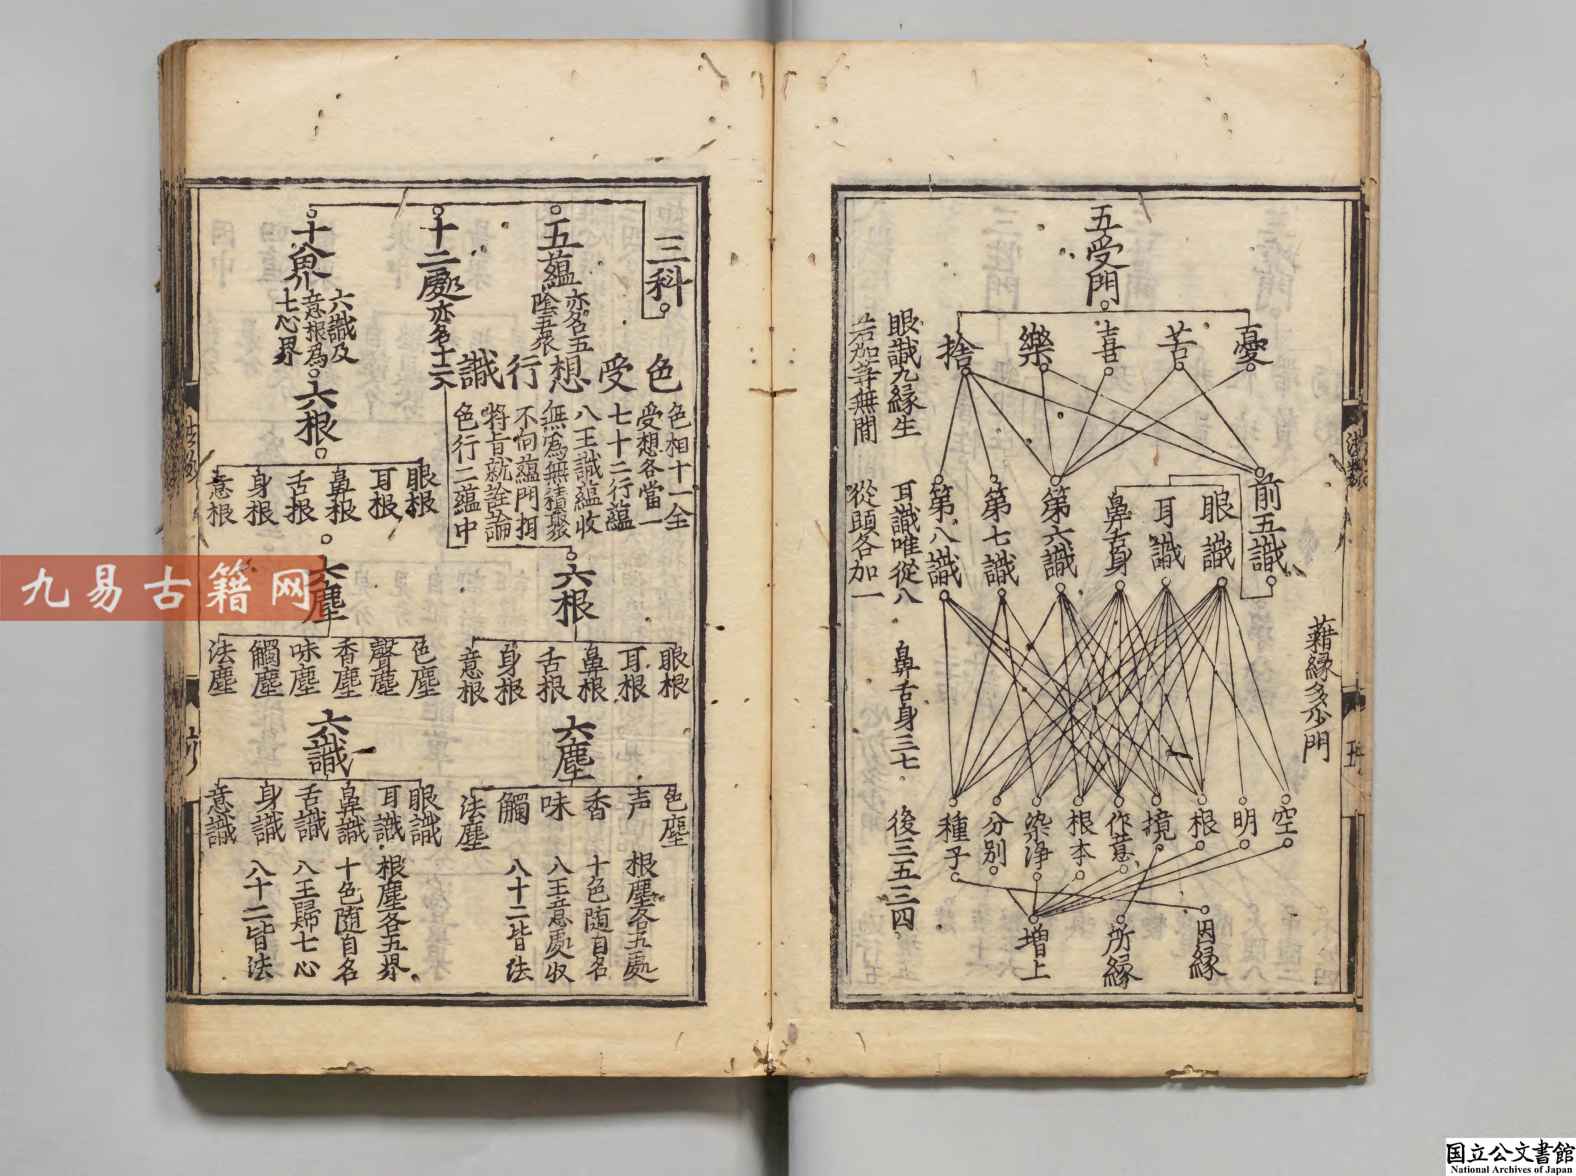 五受門
憂
苦
喜
樂
捨
前五識
眼識
耳識
鼻舌身
第六識
第七識
第八識
藉緣多少門
空
明
根
境
作意
根本
染淨
分別
種子
因緣
所緣
增上
眼識九緣生
耳識唯從八
鼻舌身三七
後三五三四
若加等無間
從頭各加一
三科
五蘊
亦名五
陰五衆
十二處
亦名十二入
十八界
六識及
意根爲
七心界
色
受
想
行
識
色相十一全
受想各當一
七十二行蘊
八王識蘊收
無爲無積聚
不向蘊門拘
將旨就詮論
色行二蘊中
六根
眼根
耳根
鼻根
舌根
身根
意根
六塵
色塵
声
香
味
觸
法塵
根塵各五處
十色隨自名
八王意處收
八十二皆法
六根
眼根
耳根
鼻根
舌根
身根
意根
六塵
色塵
聲塵
香塵
味塵
觸塵
法塵
六識
眼識
耳識
鼻識
舌識
身識
意識
根塵各五界
十色隨自名
八王歸七心
八十二皆法
九易古籍网
国立公文書館
National Archives of Japan